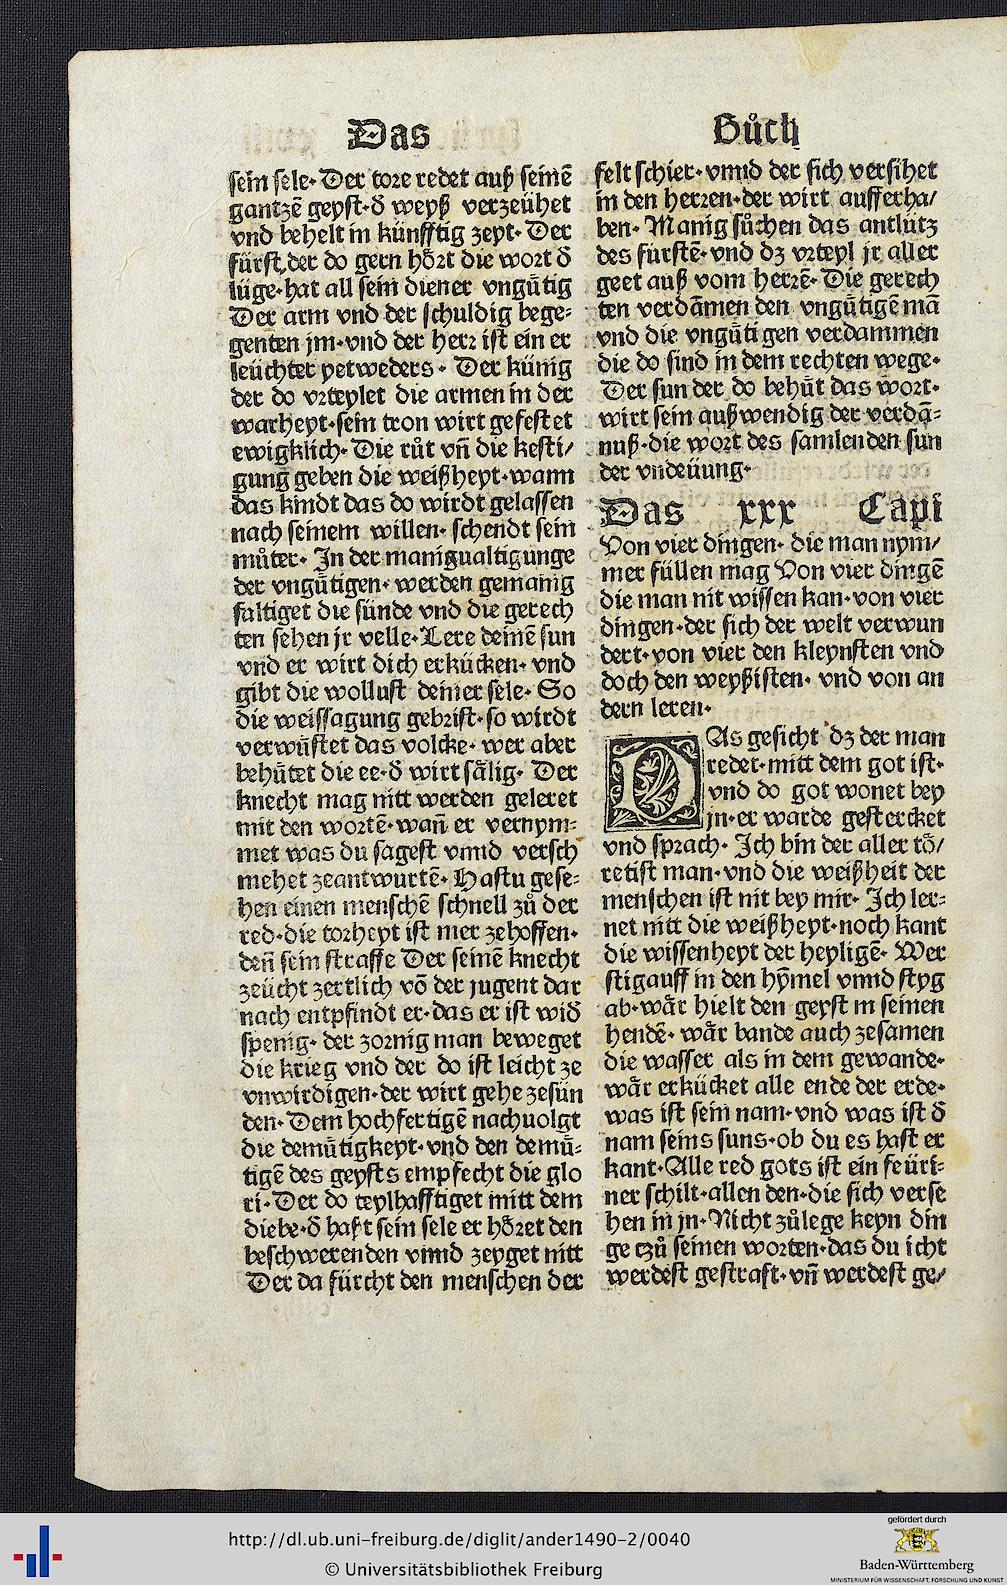 Das
Bůch
sein sele· Der tore redet auß seinē
gantzē geyst·ð weyß verzeühet
vnd behelt in künfftig zeyt· Der
fürst der do gern hȯꝛt die wort ð
lüge·hat all sein diener vngütig
Der arm vnd der schuldig bege⸗
genten jm·vnd der herꝛ ist ein er
leüchter yetweders· Der künig
der do vꝛteylet die armen in der
warheyt·sein tron wirt gefestet
ewigklich· Die růt vn̄ die kesti/
gung geben die weißheyt·wann
das kindt das do wirdt gelassen
nach seinem willen· schendt sein
můter· In der manigualtigunge
der vngütigen· werden gemanig
faltiget die sünde vnd die gerech
ten sehen jr velle·Lere deinē sun
vnd er wirt dich erkücken· vnd
gibt die wollust deiner sele· So
die weissagung gebꝛist·so wirdt
verwüstet das volcke· wer aber
behütet die ee·ð wirt sälig· Der
knecht mag nitt werden geleret
mit den wortē·wan̄ er vernym⸗
met was du sagest vnnd versch
mehet zeantwurtē· Hastu gese⸗
hen einen menschē schnell zů der
red·die torheyt ist mer zehoffen·
den̄ sein straffe Der seinē knecht
zeücht zertlich vō der jugent dar
nach entpfindt er·das er ist wið
spenig· der zornig man beweget
die krieg vnd der do ist leicht ze
vnwirdigen·der wirt gehe zesün
den· Dem hochfertigē nachuolgt
die demütigkeyt·vnd den demü⸗
tigē des geysts empfecht die glo
ri· Der do teylhafftiget mitt dem
diebe·ð haßt sein sele er höret den
beschwerenden vnnd zeyget nitt
Der da fürcht den menschen der
felt schier·vnnd der sich versihet
in den herꝛen·der wirt aufferha/
ben· Manig sůchen das antlütz
des fürstē·vnd dz vꝛteyl jr aller
geet auß vom herꝛē· Die gerech
ten verdāmen den vngütigē mā
vnd die vngütigen verdammen
die do sind in dem rechten wege·
Der sun der do behüt das wort·
wirt sein außwendig der verdā⸗
nuß·die wort des samlenden sun
der vndeüung·
Das xxx Capi
Von vier dingen· die man nym/
mer füllen mag Von vier dingē
die man nit wissen kan·von vier
dingen·der sich der welt verwun
dert·von vier den kleynsten vnd
doch den weyßisten· vnd von an
dern leren·
DAs gesicht dz der man
redet·mitt dem got ist·
vnd do got wonet bey
jn·er warde gestercket
vnd sprach· Ich bin der aller tȯ/
retist man·vnd die weißheit der
menschen ist nit bey mir· Ich ler⸗
net nitt die weißheyt·noch kant
die wissenheyt der heyligē· Wer
stigauff in den hȳmel vnnd styg
ab·wär hielt den geyst in seinen
hendē· wär bande auch zesamen
die wasser als in dem gewande·
wär erkücket alle ende der erde·
was ist sein nam·vnd was ist ð
nam seins suns·ob du es hast er
kant·Alle red gots ist ein feüri⸗
ner schilt·allen den·die sich verse
hen in jn·Nicht zůlege keyn din
ge tzů seinen worten·das du icht
werdest gestraft·vn̄ werdest ge/
http://dl.ub.uni-freiburg.de/diglit/ander1490-2/0040
© Universitätsbibliothek Freiburg
gefördert durch
Baden-Württemberg
MINISTERIUM FÜR WISSENSCHAFT, FORSCHUNG UND KUNST